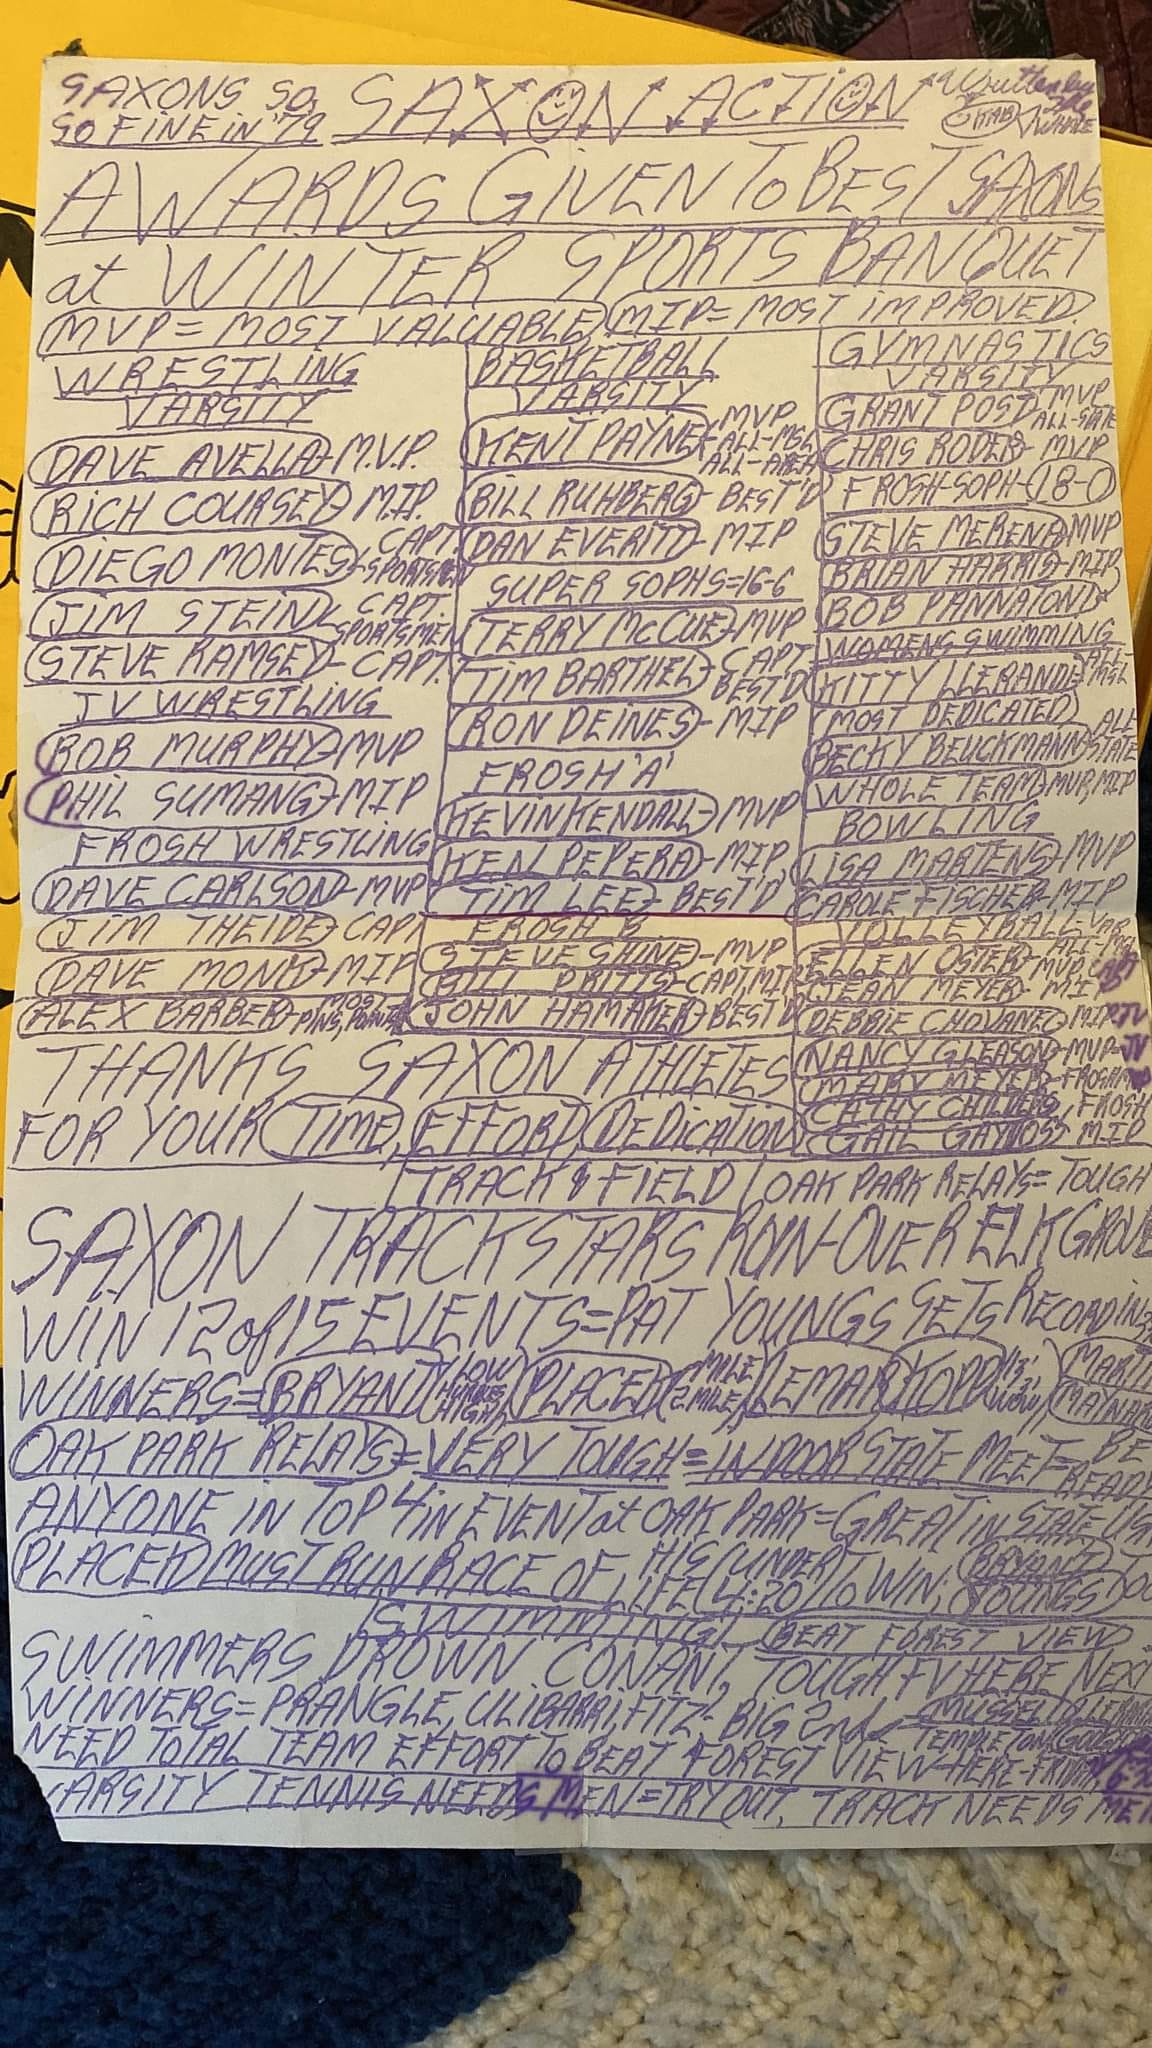 SAXONS SO, SO FINE IN '79
SAXON ACTION
Written by The White
AWARDS GIVEN TO BEST SAXONS
at WINTER SPORTS BANQUET
MVP = MOST VALUABLE, MIP = MOST IMPROVED
WRESTLING
VARSITY
DAVE AVELLA - M.V.P.
RICH COURSEY - M.I.P.
DIEGO MONTES - CAPT. SPORTSMEN
JIM STEIN CAPT. SPORTSMEN
STEVE RAMSEY - CAPT.
JV WRESTLING
ROB MURPHY - MVP
PHIL SUMANG - MIP
FROSH WRESTLING
DAVE CARLSON - MVP
JIM THEIDE - CAPT
DAVE MONK - MIP
ALEX BARBER - MOST PINS, POINTS
BASKETBALL
VARSITY
KENT PAYNE - MVP ALL-MSL ALL-AREA
BILL RUHBERG - BEST'D
DAN EVERITT - MIP
SUPER SOPHS = 16-6
TERRY McCUE - MVP
TIM BARTHEL - CAPT. BEST'D
RON DEINES - MIP
FROSH 'A'
KEVIN KENDALL - MVP
KEN PEPERA - MIP
TIM LEE - BEST'D
FROSH B
STEVE SHINE - MVP
BILL PRITTS - CAPT, MIP
JOHN HAMAKER - BEST'D
GYMNASTICS
VARSITY
GRANT POST MVP ALL-STATE
CHRIS RODER - MVP
FROSH-SOPH - 18-0
STEVE MERENA MVP
BRIAN HARRIS - MIP
BOB PANNATON
WOMENS SWIMMING
KITTY LLERANDE - ALL-MSL
MOST DEDICATED
BECKY BEUCKMANN ALL STATE
WHOLE TEAM - MVP, MIP
BOWLING
LISA MARTENS - MVP
CAROLE FISCHER - MIP
VOLLEYBALL - VAR
ELLEN OSTER - ALL-MSL MVP, CAPT
JEAN MEYER - MIP
DEBBIE CHOVANEC - MIP JV
NANCY GLEASON - MVP - JV
MARY MEYER - FROSH MVP
CATHY CHILDERS, FROSH
GAIL GAYDOS MIP
THANKS SAXON ATHLETES
FOR YOUR TIME, EFFORT, DEDICATION
TRACK & FIELD OAK PARK RELAYS = TOUGH
SAXON TRACKSTARS RUN-OVER ELK GROVE
WIN 12 of 15 EVENTS = PAT YOUNGS SETS RECORD IN
WINNERS = BRYANT (LOW HURDLES HIGH), PLACEK (MILE 2 MILE), LEMAR, KOPP MARTIN MAYNARD
OAK PARK RELAYS = VERY TOUGH = INDOOR STATE MEET = BE READY
ANYONE IN TOP 4 IN EVENT at OAK PARK = GREAT IN STATE
PLACEK MUST RUN RACE OF HIS LIFE (UNDER 4:20) TO WIN; BRYANT YOUNGS TOO
SWIMMING BEAT FOREST VIEW
SWIMMERS DROWN CONANT, TOUGH FV HERE NEXT
WINNERS = PRANGLE, ULIBARRI, FITZ - BIG 2nds MUSSEL LLERANDE
TEMPLETON
NEED TOTAL TEAM EFFORT TO BEAT FOREST VIEW - HERE - FRIDAY 6:30
VARSITY TENNIS NEEDS MEN = TRY OUT. TRACK NEEDS MEN